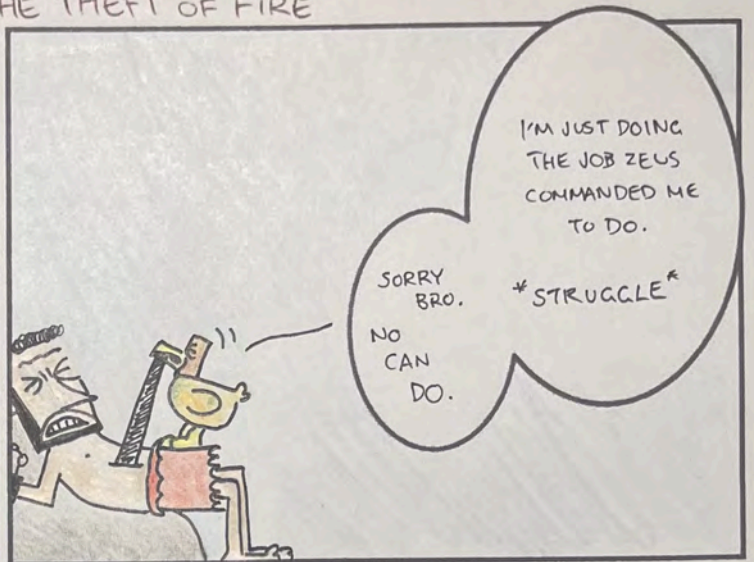 HE THEFT OF FIRE
SORRY
BRO.
NO
CAN
DO.
I'M JUST DOING
THE JOB ZEUS
COMMANDED ME
TO DO.
*STRUGGLE*